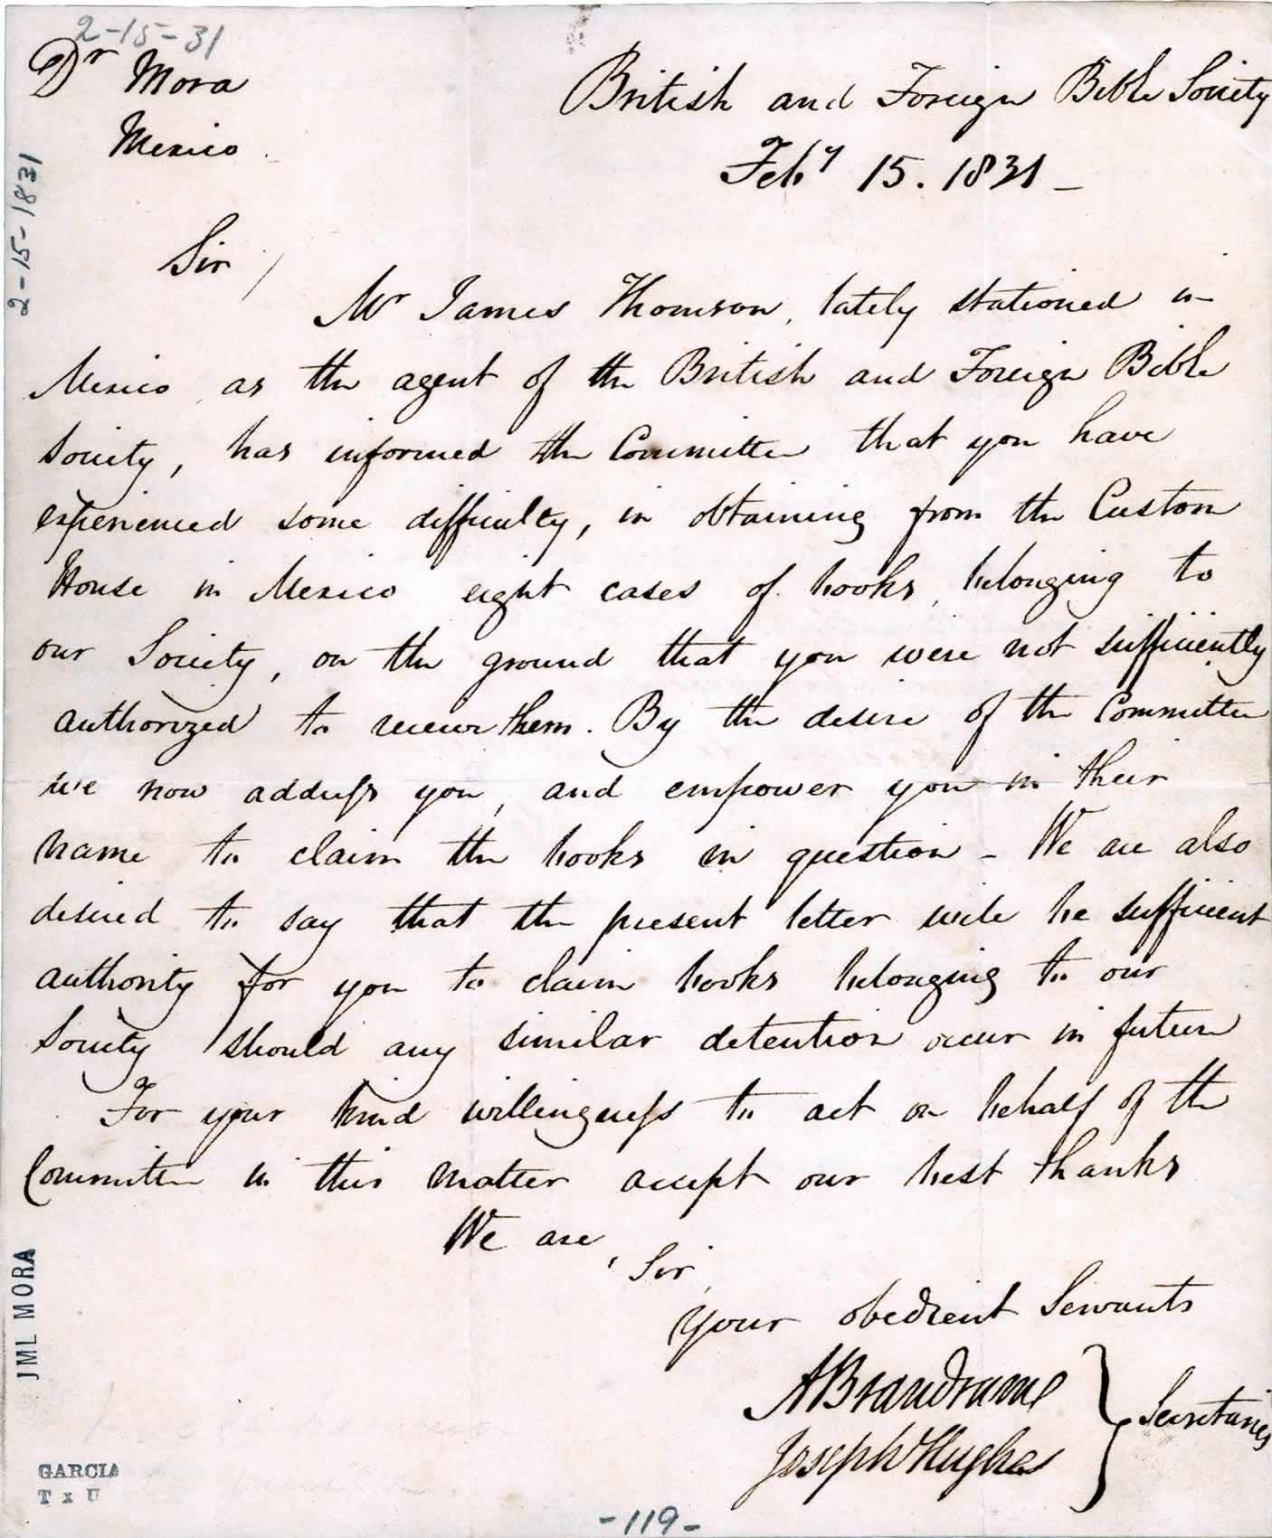 2-15-31
Dr Mora
Mexico
British and Foreign Bible Society
Feby 15. 1831 -
2-15-1831
Sir /
Mr James Thomson, lately stationed in
Mexico, as the agent of the British and Foreign Bible
Society, has informed the Committee that you have
experienced some difficulty, in obtaining from the Custom
House in Mexico eight cases of books, belonging to
our Society, on the ground that you were not sufficiently
authorized to receive them. By the desire of the Committee
we now address you, and empower you in their
name to claim the books in question - We are also
desired to say that the present letter will be sufficient
authority for you to claim books belonging to our
Society should any similar detention occur in future
For your kind willingness to act on behalf of the
Committee in this matter accept our best thanks
We are,
Sir,
your obedient Servants
A Brandrame
Joseph Hughes
} Secretaries
JML MORA
GARCIA
T x U
-119-